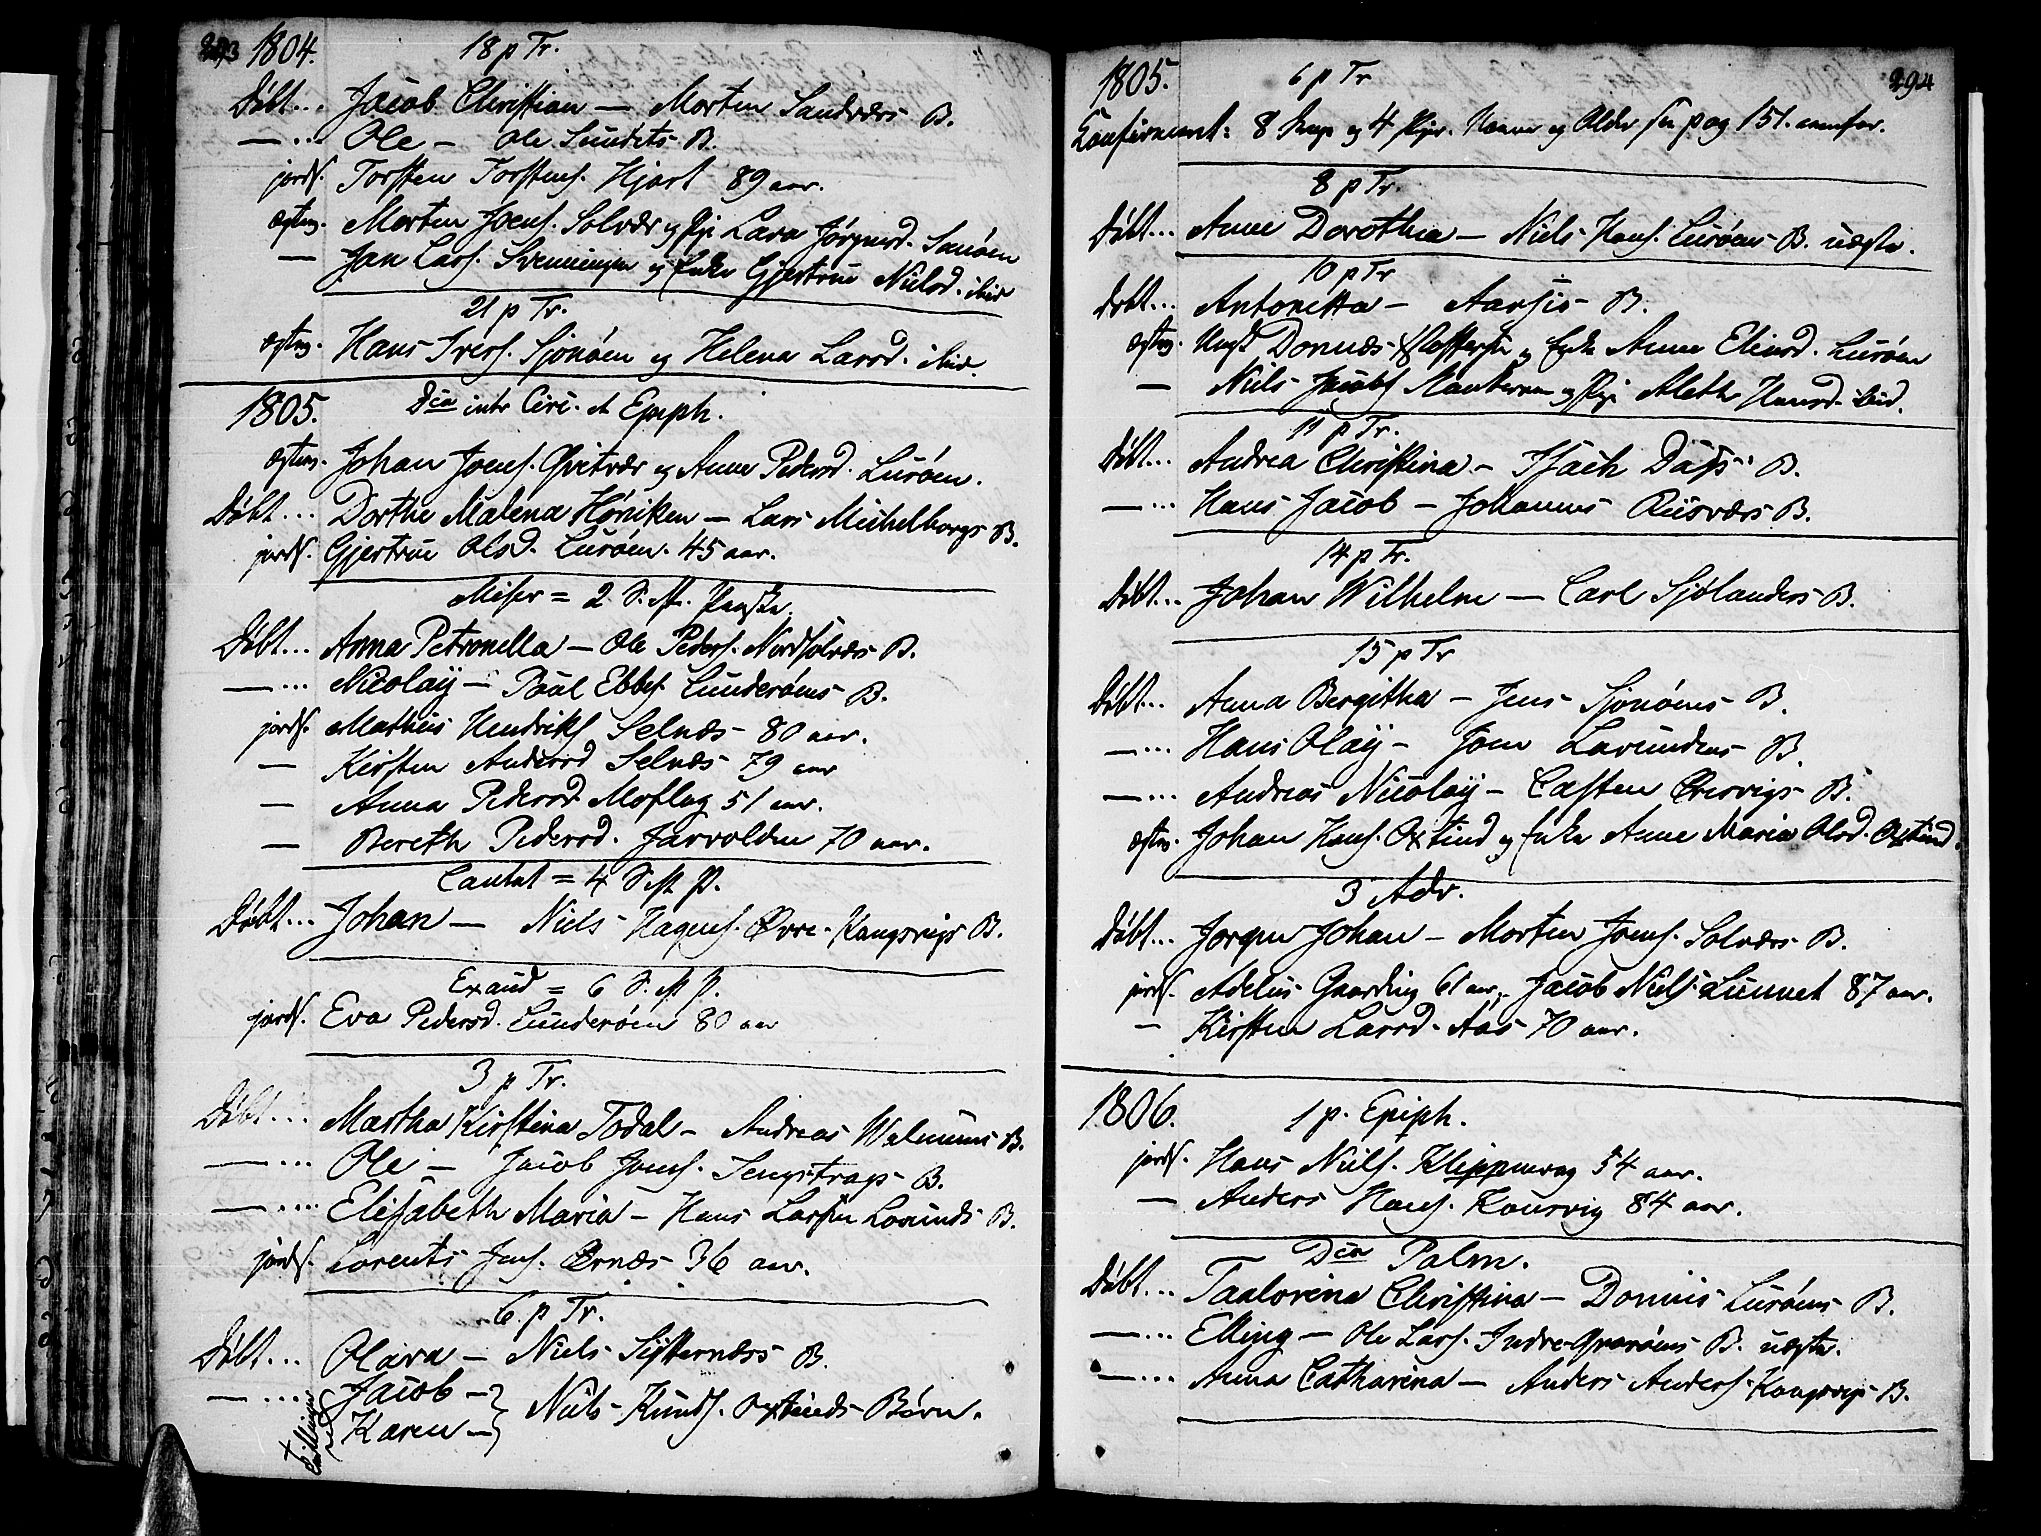 293 1804. 18 p Tr.
Døbt... Jacob Christian — Morten Sandværs B.
—... Ole — Ole Sundets B.
jords. Torsten Torstens. Hjort 89 aar.
ægtev. Morten Joens. Solvær og Pige Lava Jørgensd. Sanøen
— Jan Lars. Svenningen og Enke Gjertrue Nielsd. ibid
21 p Tr.
ægtev. Hans Ivers. Sjonøen og Helena Larsd. ibid.
1805. Dca intr Circ. et Epiph.
ægtev. Johan Joens. Qvitvær og Anne Pedersd. Lurøen.
Døbt... Dorthe Malena Høniken — Lars Michelborgs B.
jords. Gjertrue Olsd. Lurøen. 45 aar.
Miser = 2 S. eft. Paaske.
Døbt... Anna Petronella — Ole Peders. Nordsolvær B.
—... Nicolaÿ — Paul Ebbes. Lunderøens B.
jords. Mathias Hendriks Selnæs — 80 aar.
— Kirsten Andersd Selnæs 79 aar
— Anna Pedersd Moflag 51 aar.
— Bereth Pedersd. Jarvolden 70 aar.
Cantat = 4 S. eft P.
Døbt... Johan — Niels Hagens. Øvre-Kangsvigs B.
Exaud = 6 S. eft P.
jords. Eva Pedersd. Lunderøen 80 aar
3 p Tr.
Døbt... Martha Kirstina Todal — Andreas B.
—... Ole — Jacob Jons. B.
—... Elisabeth Maria — Hans Larsen Lovunds B.
jords. Lorents Jens. Ørnæs 36 aar.
6. p Tr.
Døbt... Olava — Niels Sisternæss B.
—... Jacob —
Tvillinger Karen — Niels Knuds. Oxtinds Børn.
1805. 6 p Tr 294
Confirmeret: 8 Drenge og 4 Piger. Navne og Alder see pag 151. ovenfor.
8 p Tr.
Døbt... Anne Dorothea — Niels Hans. Lurøens B. uægte.
10 p Tr
Døbt... Antonetta — B.
ægtev. Ungk Donnæs og Enke Anne Eliasd. Lurøen
— Niels Jacobs og Pige Aleth Hansd. ibid.
11 p Tr.
Døbt... Andrea Christina — Isach Dass B.
—... Hans Jacob — Johannes B.
14 p Tr.
Døbt... Johan Wilhelm — Carl Sjølanders B.
15 p Tr
Døbt... Anna Bergitha — Jens Sjonøens B.
—... Hans Olaÿ — Joen Lovundens B.
—... Andreas Nicolaÿ — Casten B.
ægtev. Johan Hans. Oxtind og Enke Anne Maria Olsd. Oxtind.
3 Adv.
Døbt... Jørgen Johan — Morten Joens. Solværs B.
jords. Adelus Gaarding 61 aar, — Jacob Niels. Lunnet 87 aar.
— Kirsten Larsd. Aas 70 aar.
1806. 1 p. Epiph.
jords. Hans Niels. Klippenvag 54 aar.
— Anders Hans. Konsvig 84 aar.
Dca Palm.
Døbt... Taalorina Christina — Donnis Lurøens B.
—... Elling — Ole Lars. Indre-Qvarøens B. uægte.
—... Anna Catharina — Anders Anders. Kangsvigs B.